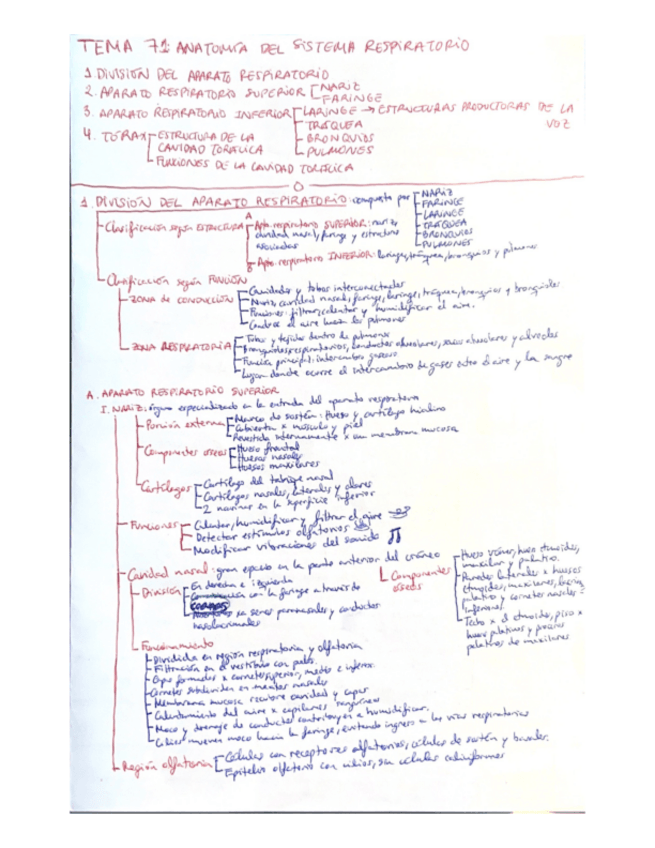 TEMA 7.1: ANATOMÍA DEL SISTEMA RESPIRATORIO
1. DIVISIÓN DEL APARATO RESPIRATORIO
2. APARATO RESPIRATORIO SUPERIOR NARIZ
FARINGE
3. APARATO RESPIRATORIO INFERIOR LARINGE → ESTRUCTURAS PRODUCTORAS DE LA VOZ
TRÁQUEA
BRONQUIOS
PULMONES
4. TÓRAX ESTRUCTURA DE LA CAVIDAD TORÁCICA
FUNCIONES DE LA CAVIDAD TORÁCICA
1. DIVISIÓN DEL APARATO RESPIRATORIO: compuesto por NARIZ
FARINGE
LARINGE
TRÁQUEA
BRONQUIOS
PULMONES
Clasificación según ESTRUCTURA
A
Apto. respiratorio SUPERIOR: nariz,
cavidad nasal, faringe y estructuras
asociadas
B Apto. respiratorio INFERIOR: laringe, tráquea, bronquios y pulmones
Clasificación según FUNCIÓN
ZONA DE CONDUCCIÓN
Cavidades y tubos interconectados
Nariz, cavidad nasal, faringe, laringe, tráquea, bronquios y bronquiolos
Funciones: filtrar, calentar y humidificar el aire.
Conduce el aire hacia los pulmones
ZONA RESPIRATORIA
Tubos y tejidos dentro de pulmones
Bronquiolos respiratorios, conductos alveolares, sacos alveolares y alveolos
Función principal: intercambio gaseoso
Lugar donde ocurre el intercambio de gases entre el aire y la sangre
A. APARATO RESPIRATORIO SUPERIOR
I. NARIZ: órgano especializado en la entrada del aparato respiratorio
Porción externa
Marco de sostén: hueso y cartílago hialino
Cubierta x músculo y piel
Revestida internamente x una membrana mucosa
Componentes óseos
Hueso frontal
Huesos nasales
Huesos maxilares
Cartílagos
Cartílago del tabique nasal
Cartílagos nasales, laterales y alares
2 narinas en la superficie inferior
Funciones
Calentar, humidificar y filtrar el aire
Detectar estímulos olfatorios
Modificar vibraciones del sonido
Cavidad nasal: gran espacio en la parte anterior del cráneo
División
En derecha e izquierda
Comunicación con la faringe a través de
coanas
senos paranasales y conductos
nasolacrimales
Componentes óseos
Hueso vómer, hueso etmoides,
maxilar y palatino.
Paredes laterales x huesos
etmoides, maxilares, lacrimal,
palatino y cornetes nasales
inferiores.
Techo x el etmoides, piso x
huesos palatinos y procesos
palatinos de maxilares
Funcionamiento
Dividida en región respiratoria y olfatoria
Filtración en el vestíbulo con pelos.
Capas formadas x cornete superior, medio e inferior.
Cornetes subdividen en meatos nasales
Membrana mucosa recubre cavidad y capas
Calentamiento del aire x capilares sanguíneos
Moco y drenaje de conductos contribuyen a humidificar.
Cilios mueven moco hacia la faringe, evitando ingreso a las vías respiratorias
Región olfatoria
Células con receptores olfatorios, células de sostén y basales.
Epitelio olfatorio con cilios, sin células caliciformes